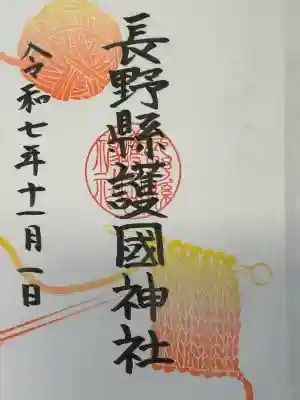 長野縣護國神社
令和七年十一月一日